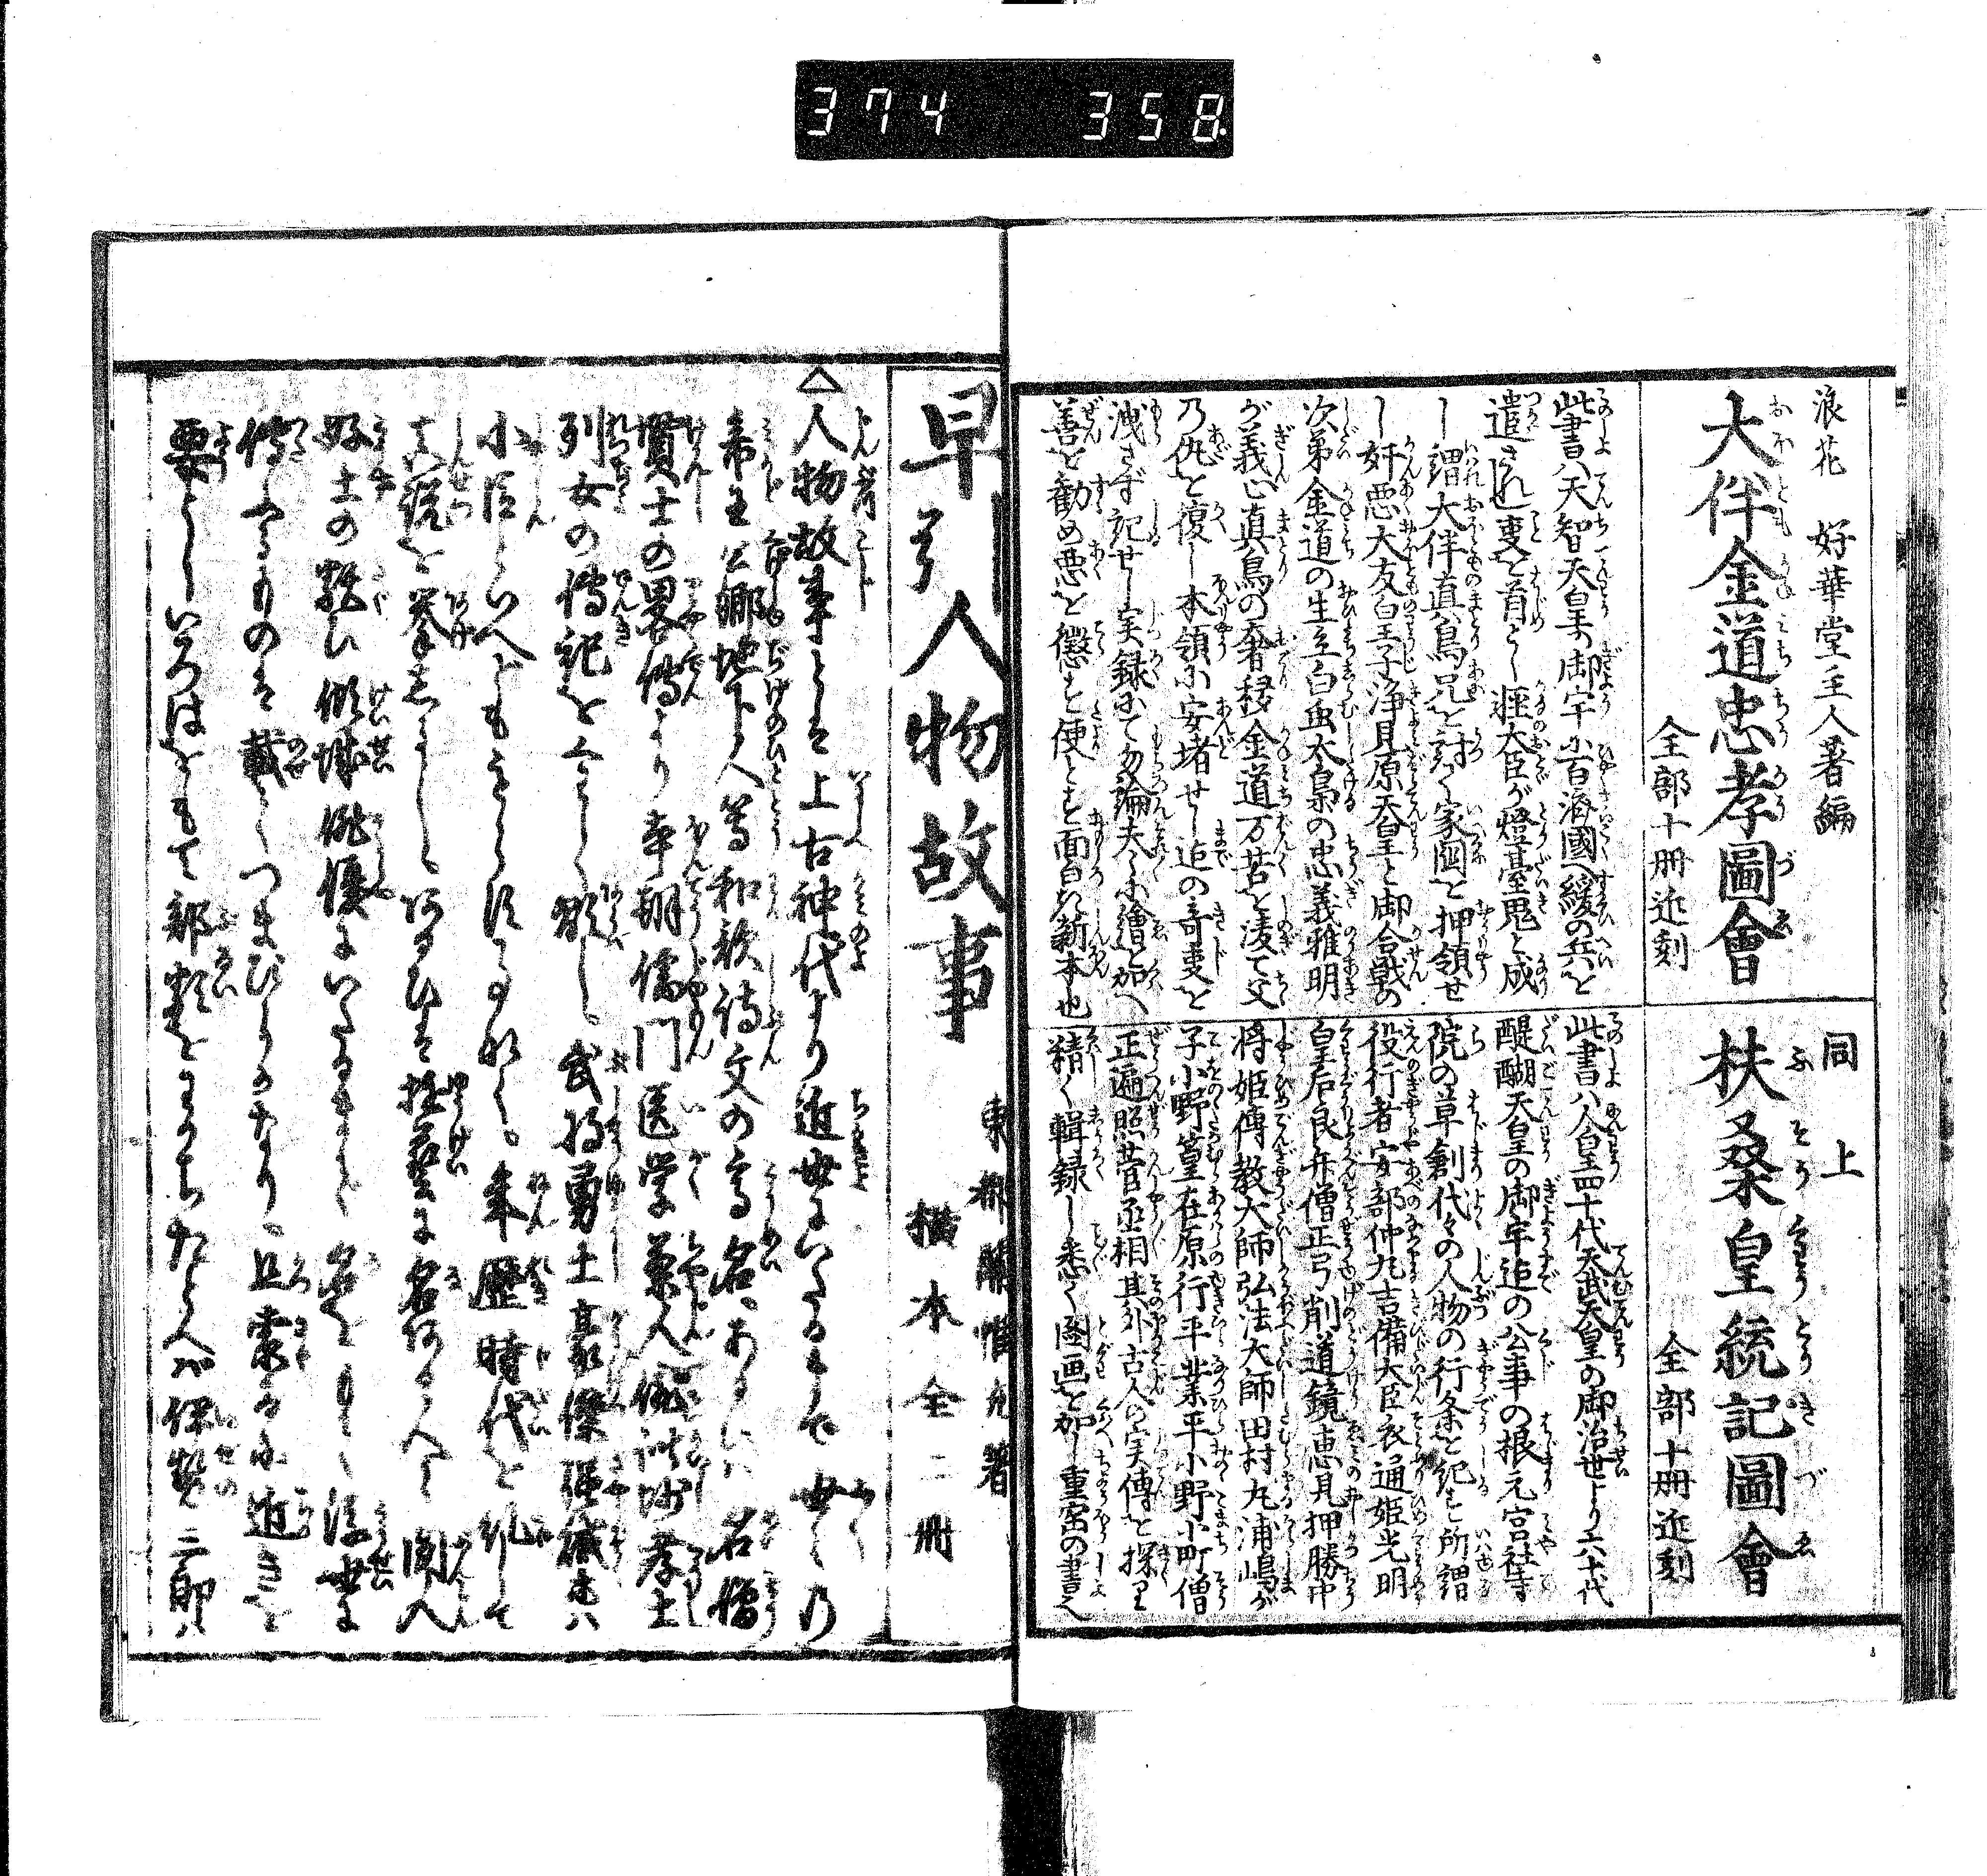 374 358
浪花 好華堂主人著編
大伴金道忠孝圖會
全部十冊近刻
此書ハ天智天皇の御宇に百済國へ援の兵を
遣されし事を首とし軽大臣が燈臺鬼と成
し謂大伴真鳥兄を討て家国を押領せ
し奸悪大友皇子浄見原天皇と御合戦の
次第金道の生立白虫太梟の忠義雅明
が義心真鳥の奢移金道万苦を凌て父
乃仇を復し本領に安堵せし迄の奇事を
洩さず記せし実録にて勿論夫々に繪を加へ
善を勧め悪を懲すを便とす面白き新本也
同上
扶桑皇統記圖會
全部十冊近刻
此書ハ人皇四十代天武天皇の御治世より六十代
醍醐天皇の御宇迄の公事の根元宮社寺
院の草創代々の人物の行条を紀す所謂
役行者安部仲丸吉備大臣衣通姫光明
皇后良弁僧正弓削道鏡恵見押勝中
将姫傳教大師弘法大師田村丸浦嶋が
子小野篁在原行平業平小野小町僧
正遍照菅丞相其外古人の実傳を探り
精く輯録し悉く圖画を加へ重宝の書也
早引人物故事
東都 著
横本全二冊
△人物故事とは上古神代より近世にいたるまで世々乃
帝王公卿地下人等和歌詩文の高名、あるひハ名僧
賢士の畧傳より本朝儒門医学藥人俳諧孝士
列女の傳記をくはしく顕し、武将勇士豪傑強賊或ハ
小臣といへどももらさず、年歴時代を糺して
真説を挙、あるひは技藝に名ある人々
好士の類ひ傾城俳優にいたるまで名をもて後世に
傳ふるものは載てつまびらかなり、且索るに近きを
要としいろはをもて部類をわかちたとへバ伊勢三郎ハ